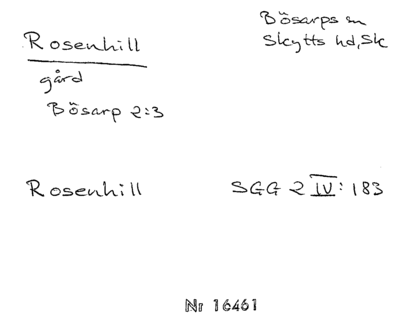 Rosenhill
Bösarps sn
Skytts hd, Sk
gård
Bösarp 2:3
Rosenhill SGG 2 IV: 183
Nr 16461